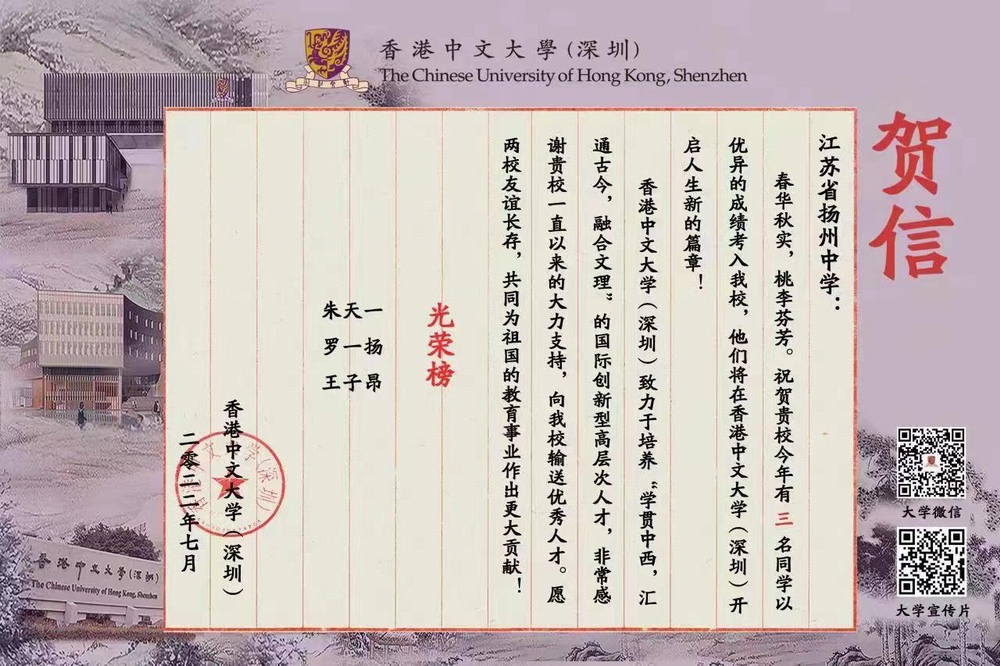 香港中文大學(深圳)
The Chinese University of Hong Kong, Shenzhen
贺信
江苏省扬州中学：
春华秋实，桃李芬芳。祝贺贵校今年有 三 名同学以
优异的成绩考入我校，他们将在香港中文大学（深圳）开
启人生新的篇章！
香港中文大学（深圳）致力于培养“学贯中西，汇
通古今，融合文理”的国际创新型高层次人才，非常感
谢贵校一直以来的大力支持，向我校输送优秀人才。愿
两校友谊长存，共同为祖国的教育事业作出更大贡献！
光荣榜
朱天一
罗一扬
王子昂
香港中文大学（深圳）
二零二二年七月
大学微信
大学宣传片
香港中文大學(深圳)
The Chinese University of Hong Kong, Shenzhen